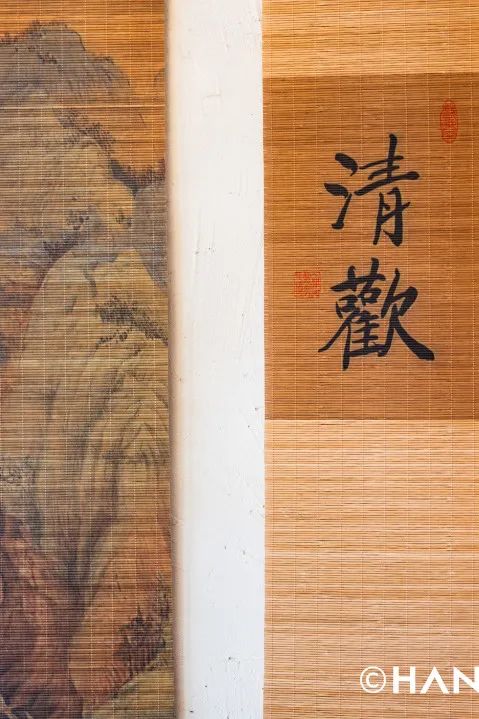 清
歡
©HAN